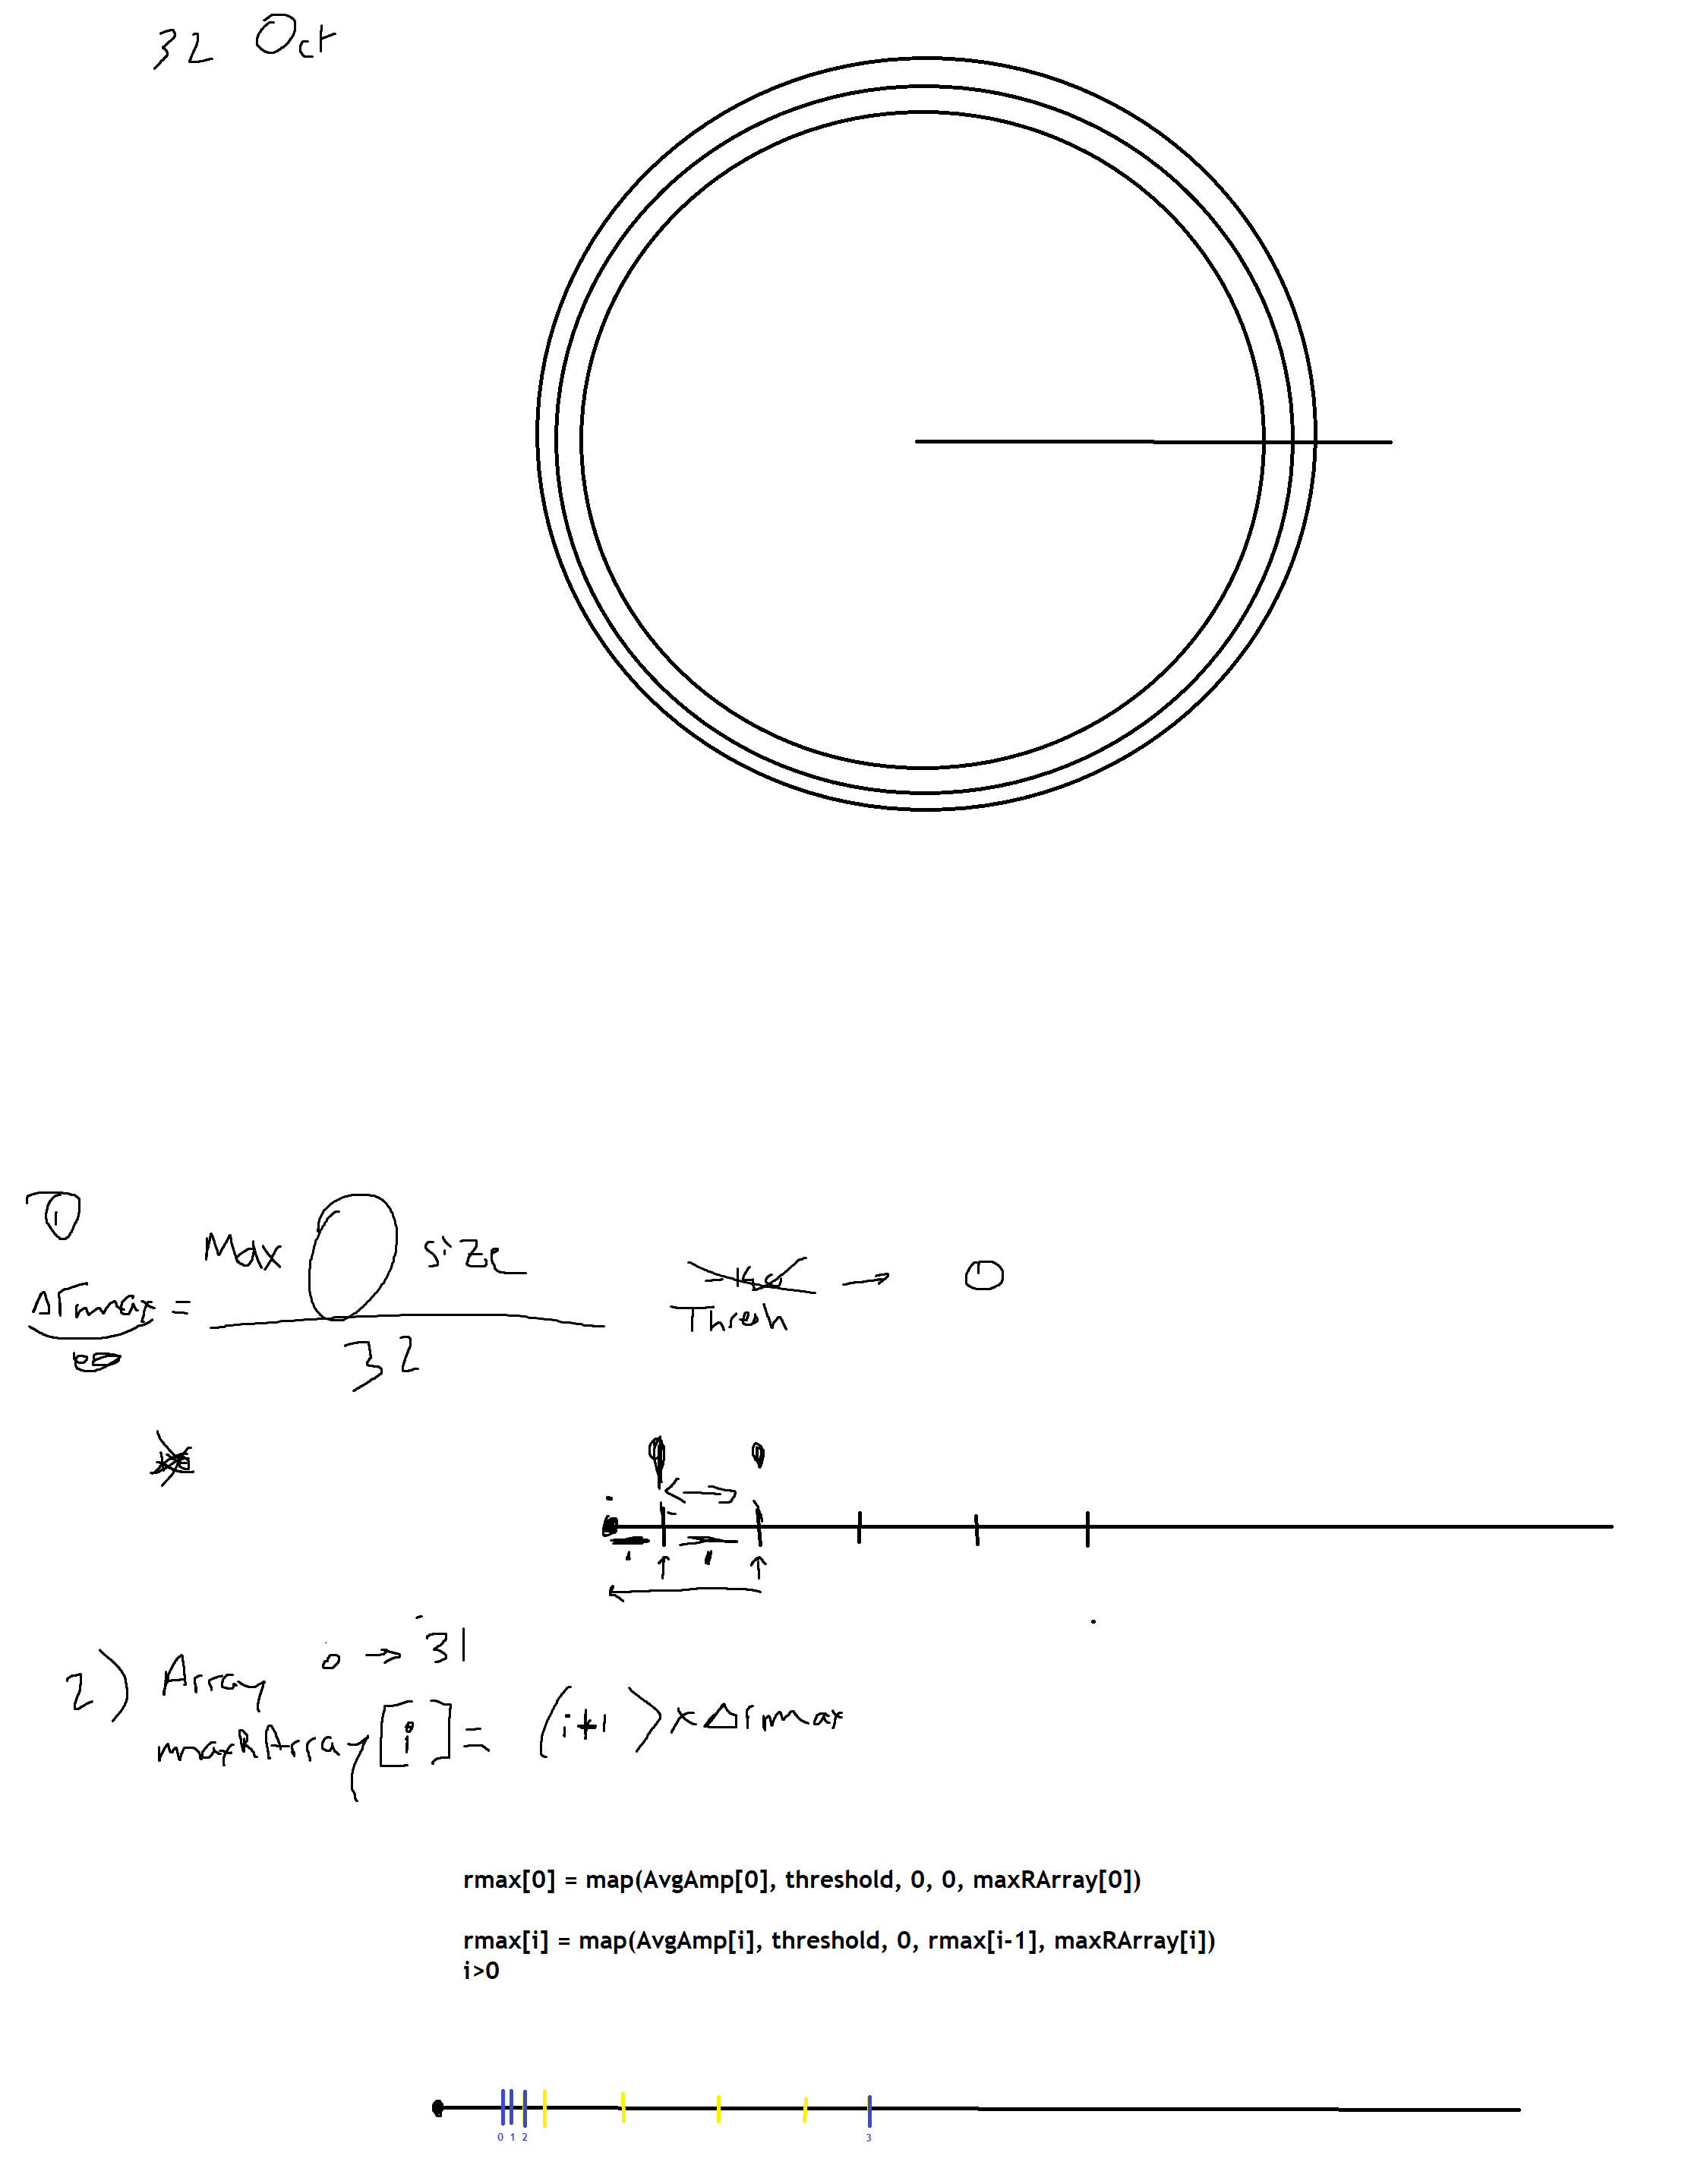 32 Oct
1
Δrmax = Max O size / 32
Thresh → 0
2) Array 0 → 31
maxRArray[i] = (i+1) x Δrmax
rmax[0] = map(AvgAmp[0], threshold, 0, 0, maxRArray[0])
rmax[i] = map(AvgAmp[i], threshold, 0, rmax[i-1], maxRArray[i])
i>0
0 1 2 3